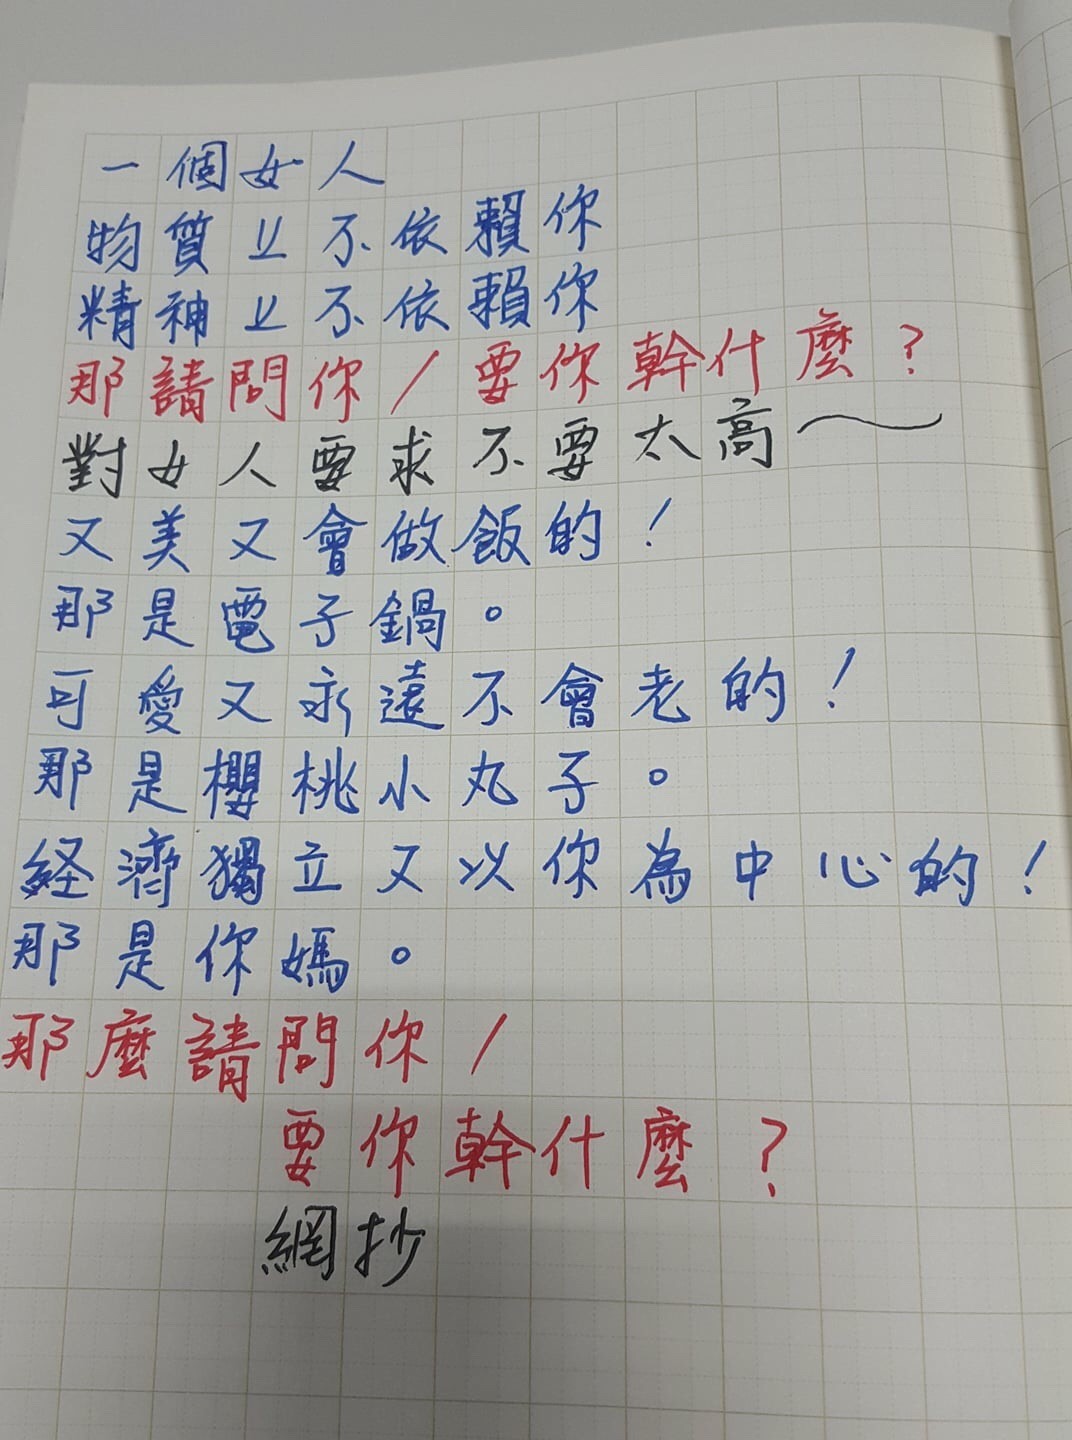 一個女人
物質上不依賴你
精神上不依賴你
那請問你/要你幹什麼?
對女人要求不要太高～
又美又會做飯的!
那是電子鍋。
可愛又永遠不會老的!
那是櫻桃小丸子。
経濟獨立又以你為中心的!
那是你媽。
那麼請問你/
要你幹什麼?
網抄